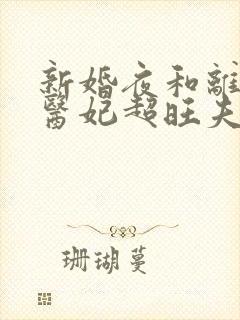 新婚夜和離
醫妃超旺夫
珊瑚蔓